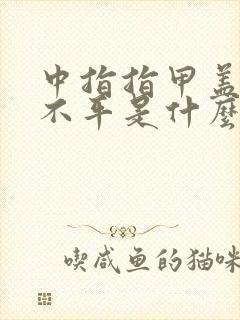 中指指甲盖
不平是什麼
喫咸鱼的猫咪